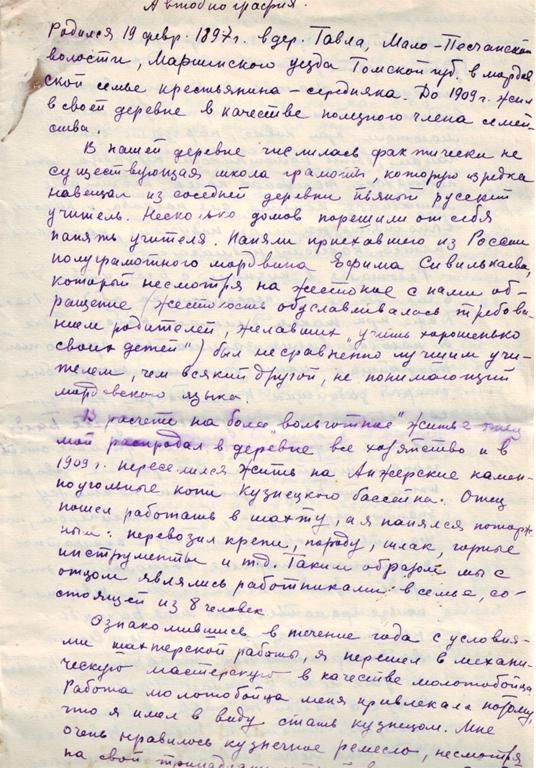 Автобиография.
Родился 19 февр. 1897 г. в дер. Тавла, Мало-Песчанской
волости, Мариинского уезда Томской губ. в мордов-
ской семье крестьянина-середняка. До 1909 г. жил
в своей деревне в качестве полезного члена семей-
ства.
В нашей деревне числилась фактически не
существующая школа грамоты, которую изредка
навещал из соседней деревни пьяный русский
учитель. Несколько домов порешили от себя
нанять учителя. Наняли приехавшего из России
полуграмотного мордвина Ефима Сивилькаева,
который несмотря на жестокое с нами об-
ращение (жестокость обуславливалась требова-
нием родителей, желавших "учить хорошенько
своих детей") был несравненно лучшим учи-
телем, чем всякий другой, не понимающий
мордовского языка.
В расчете на более "вольготное" житье отец
мой распродал в деревне все хозяйство и в
1909 г. переселился жить на Анжерские камен-
ноугольные копи Кузнецкого бассейна. Отец
пошел работать в шахту, а я нанялся
перевозил крепи, породу, шлак, горные
инструменты и т.д. Таким образом мы с
отцом являлись работниками в семье, со-
стоящей из 8 человек.
Ознакомившись в течение года с условия-
ми шахтерской работы, я перешел в механи-
ческую мастерскую в качестве молотобойца.
Работа молотобойца меня привлекала потому,
что я имел в виду стать кузнецом. Мне
очень нравилось кузнечное ремесло, несмотря
на свои тринадцать